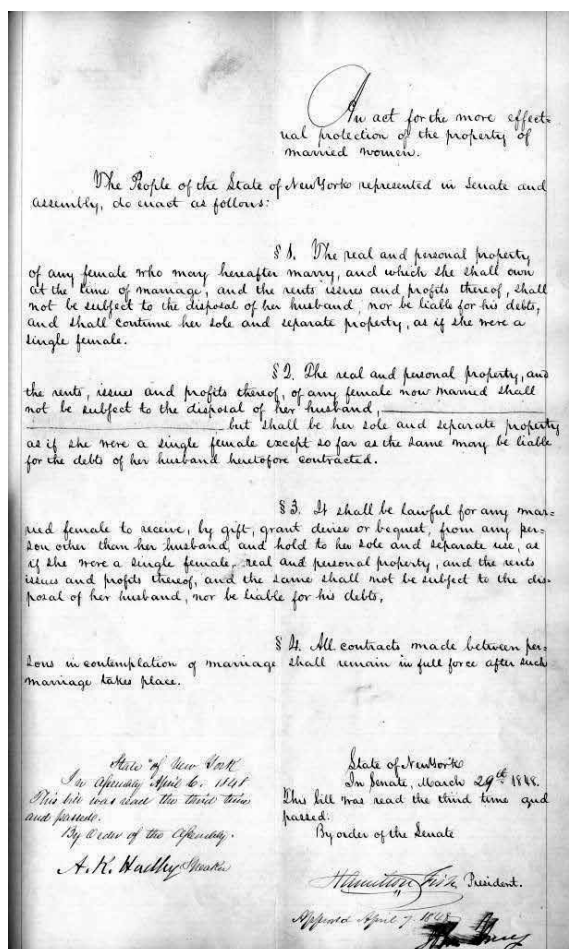 An act for the more effect=
ual protection of the property of
married women.
The People of the State of New York represented in Senate and
assembly, do enact as follows:
§ 1. The real and personal property
of any female who may hereafter marry, and which she shall own
at the time of marriage, and the rents issues and profits thereof, shall
not be subject to the disposal of her husband, nor be liable for his debts,
and shall continue her sole and separate property, as if she were a
single female.
§ 2. The real and personal property, and
the rents, issues and profits thereof, of any female now married shall
not be subject to the disposal of her husband,
but shall be her sole and separate property
as if she were a single female except so far as the same may be liable
for the debts of her husband heretofore contracted.
§ 3. It shall be lawful for any mar=
ried female to receive, by gift, grant devise or bequest, from any per=
son other than her husband, and hold to her sole and separate use, as
if she were a single female, real and personal property, and the rents
issues and profits thereof, and the same shall not be subject to the dis=
posal of her husband, nor be liable for his debts,
§ 4. All contracts made between per=
sons in contemplation of marriage shall remain in full force after such
marriage takes place.
State of New York
In Assembly April 6. 1848
This bill was read the third time
and passed.
By Order of the Assembly.
A. K. Hadley Speaker
State of New York
In Senate, March 29th 1848.
This bill was read the third time and
passed.
By order of the Senate
Hamilton Fish President.
Approved April 7. 1848